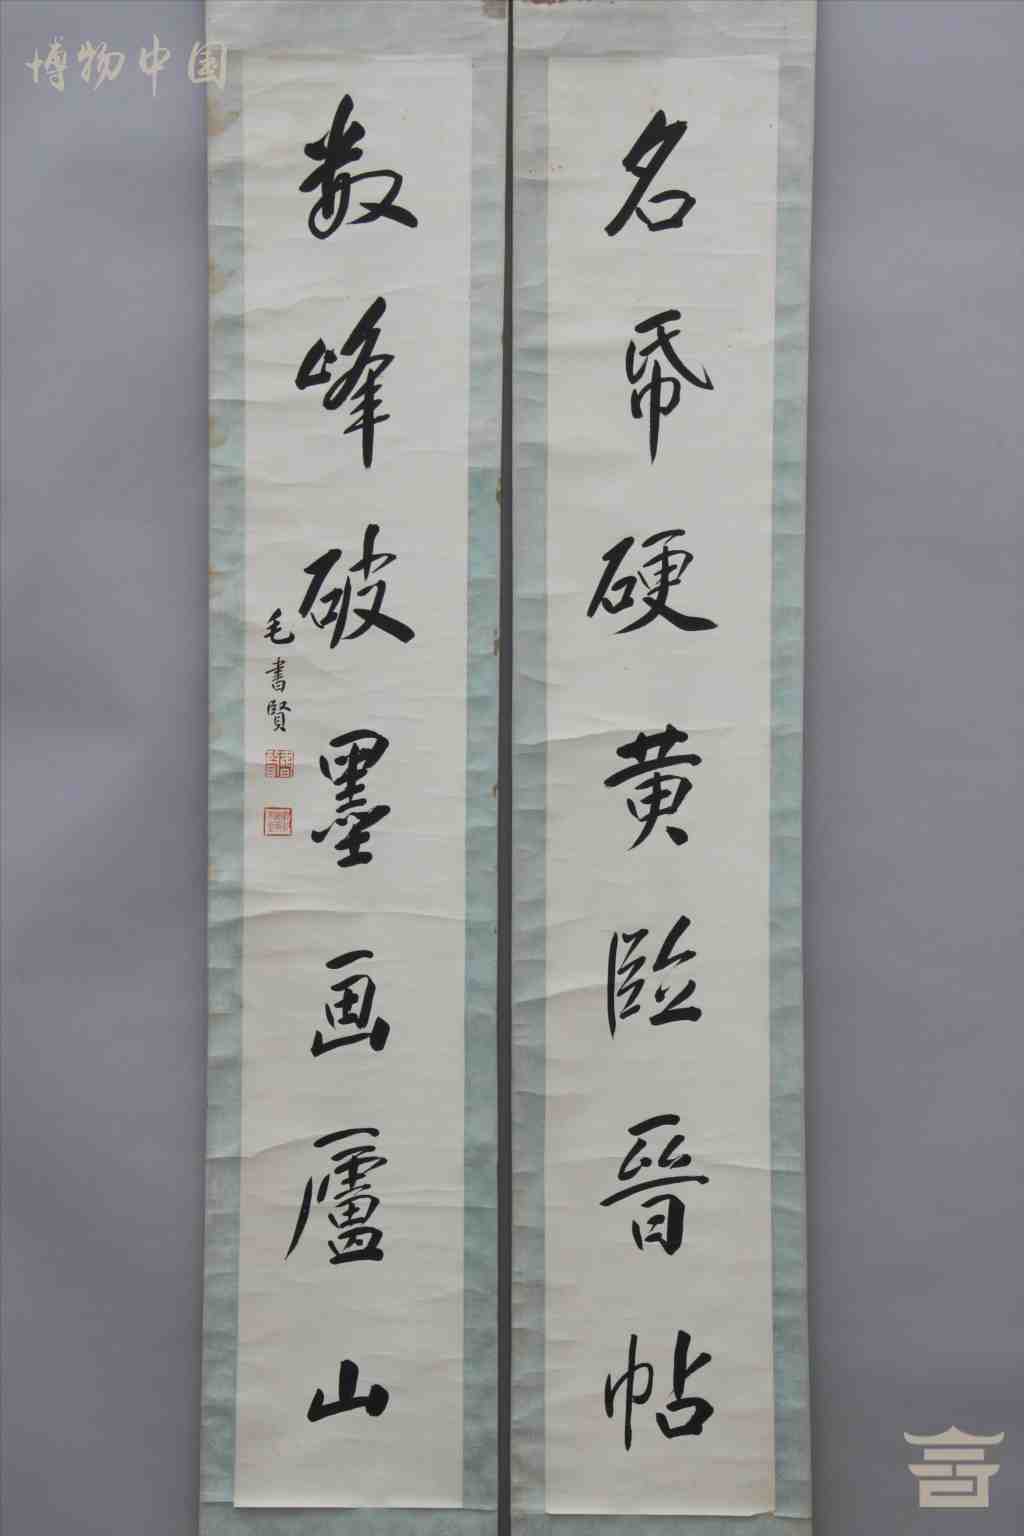 博物中国
名帋硬黄臨晉帖
数峰破墨画廬山
毛書賢